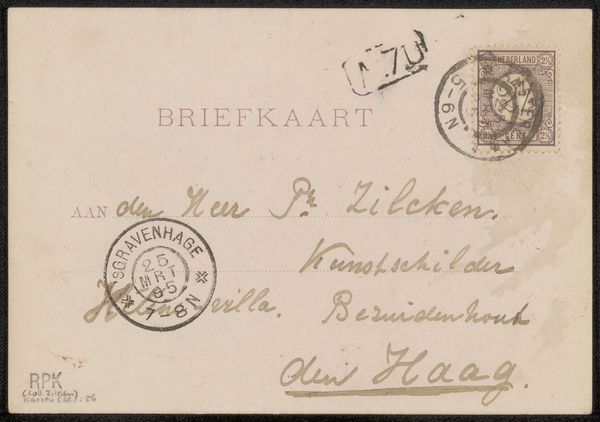 NEDERLAND
2½ 2½
CENT
5-6N
N.7U
BRIEFKAART
AAN den Heer Ph Zilcken.
Kunstschilder
Helene villa. Bezuidenhout
den Haag.
SGRAVENHAGE
25
MRT
95
7-8N
RPK
(coll. Zilcken)
Karsen (Ed.): 56